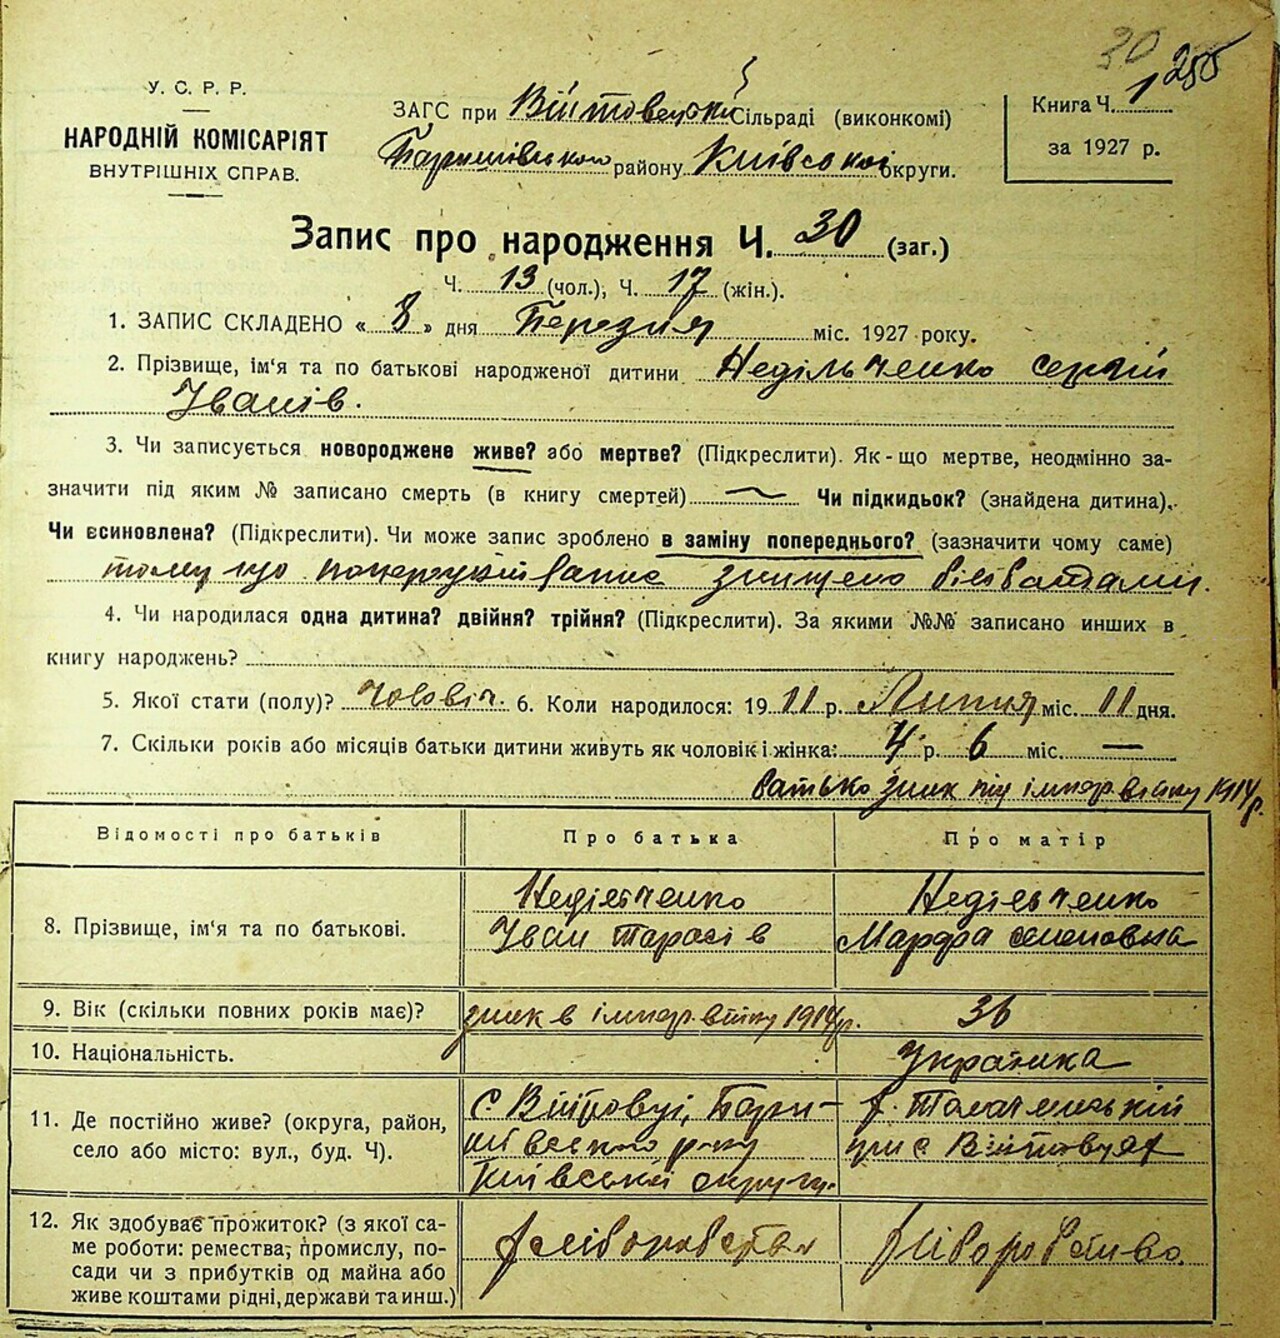 30
255
У. С. Р. Р.
НАРОДНІЙ КОМІСАРІЯТ
ВНУТРІШНІХ СПРАВ.
ЗАГС при Війтовецькій Сільраді (виконкомі)
Баришівського району Київської округи.
Книга Ч. 1
за 1927 р.
Запис про народження Ч. 30 (заг.)
Ч. 13 (чол.), Ч. 17 (жін.).
1. ЗАПИС СКЛАДЕНО « 8 » дня Березня міс. 1927 року.
2. Прізвище, ім'я та по батькові народженої дитини Недільченко Сергій
Іванів.
3. Чи записується новороджене живе? або мертве? (Підкреслити). Як-що мертве, неодмінно за-
значити під яким № записано смерть (в книгу смертей) — Чи підкидьок? (знайдена дитина).
Чи всиновлена? (Підкреслити). Чи може запис зроблено в заміну попереднього? (зазначити чому саме)
тому що попередній запис знищено бандитами.
4. Чи народилася одна дитина? двійня? трійня? (Підкреслити). За якими №№ записано инших в
книгу народжень?
5. Якої стати (полу)? чоловіч. 6. Коли народилося: 1911 р. Липня міс. 11 дня.
7. Скільки років або місяців батьки дитини живуть як чоловік і жінка: 4 р. 6 міс. —
батько зник під імпер. війну 1914 р.
Відомості про батьків
Про батька
Про матір
8. Прізвище, ім'я та по батькові.
Недільченко
Іван Тарасів
Недільченко
Марфа Семеновна
9. Вік (скільки повних років має)?
зник в імпер. війну 1914 р.
36
10. Національність.
Українка
11. Де постійно живе? (округа, район,
село або місто: вул., буд. Ч).
с. Війтовці, Бари-
шівського р-ну
Київській округи.
х. Толочминській
при с Війтовцях
12. Як здобуває прожиток? (з якої са-
ме роботи: ремества, промислу, по-
сади чи з прибутків од майна або
живе коштами рідні, держави та инш.)
хліборобством
хліборобство.